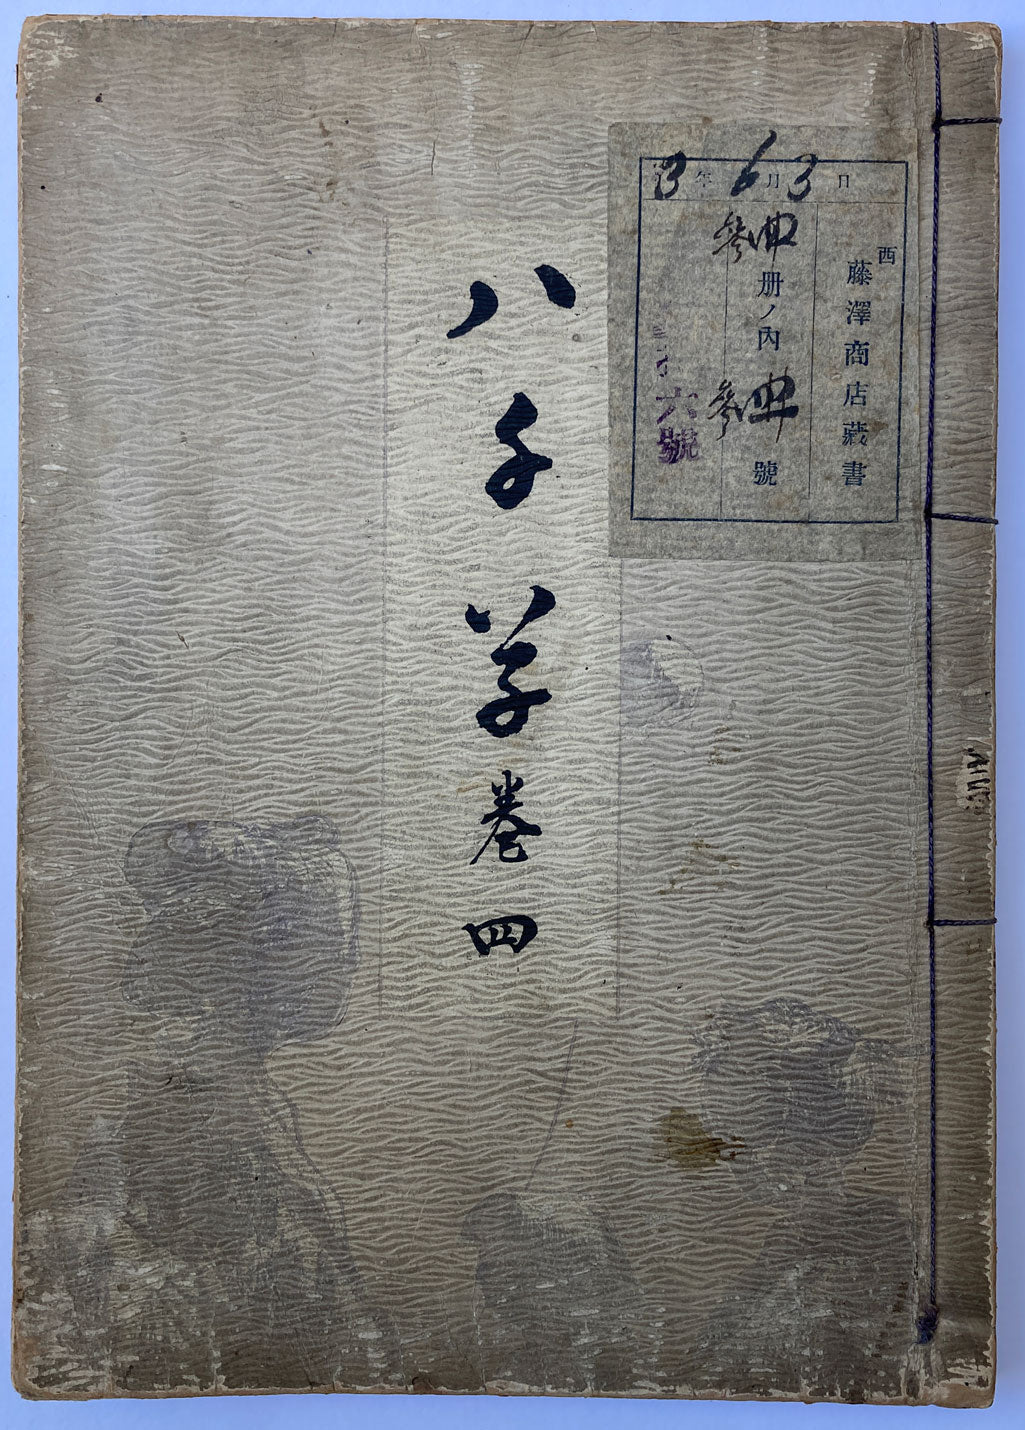 八千草巻四
3年6月3日
西藤澤商店蔵書
參冊ノ內參號
六號